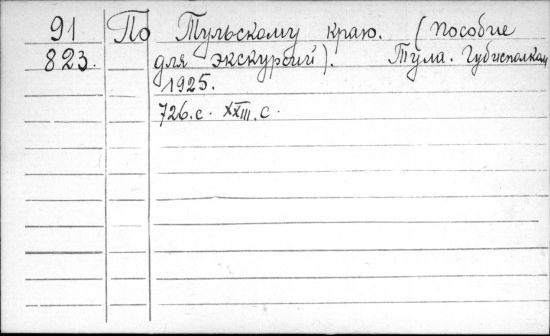 91 По Тульскому краю. (Пособие
823. для экскурсий). Тула. Губисполком
1925.
726.с. XXIII.с.